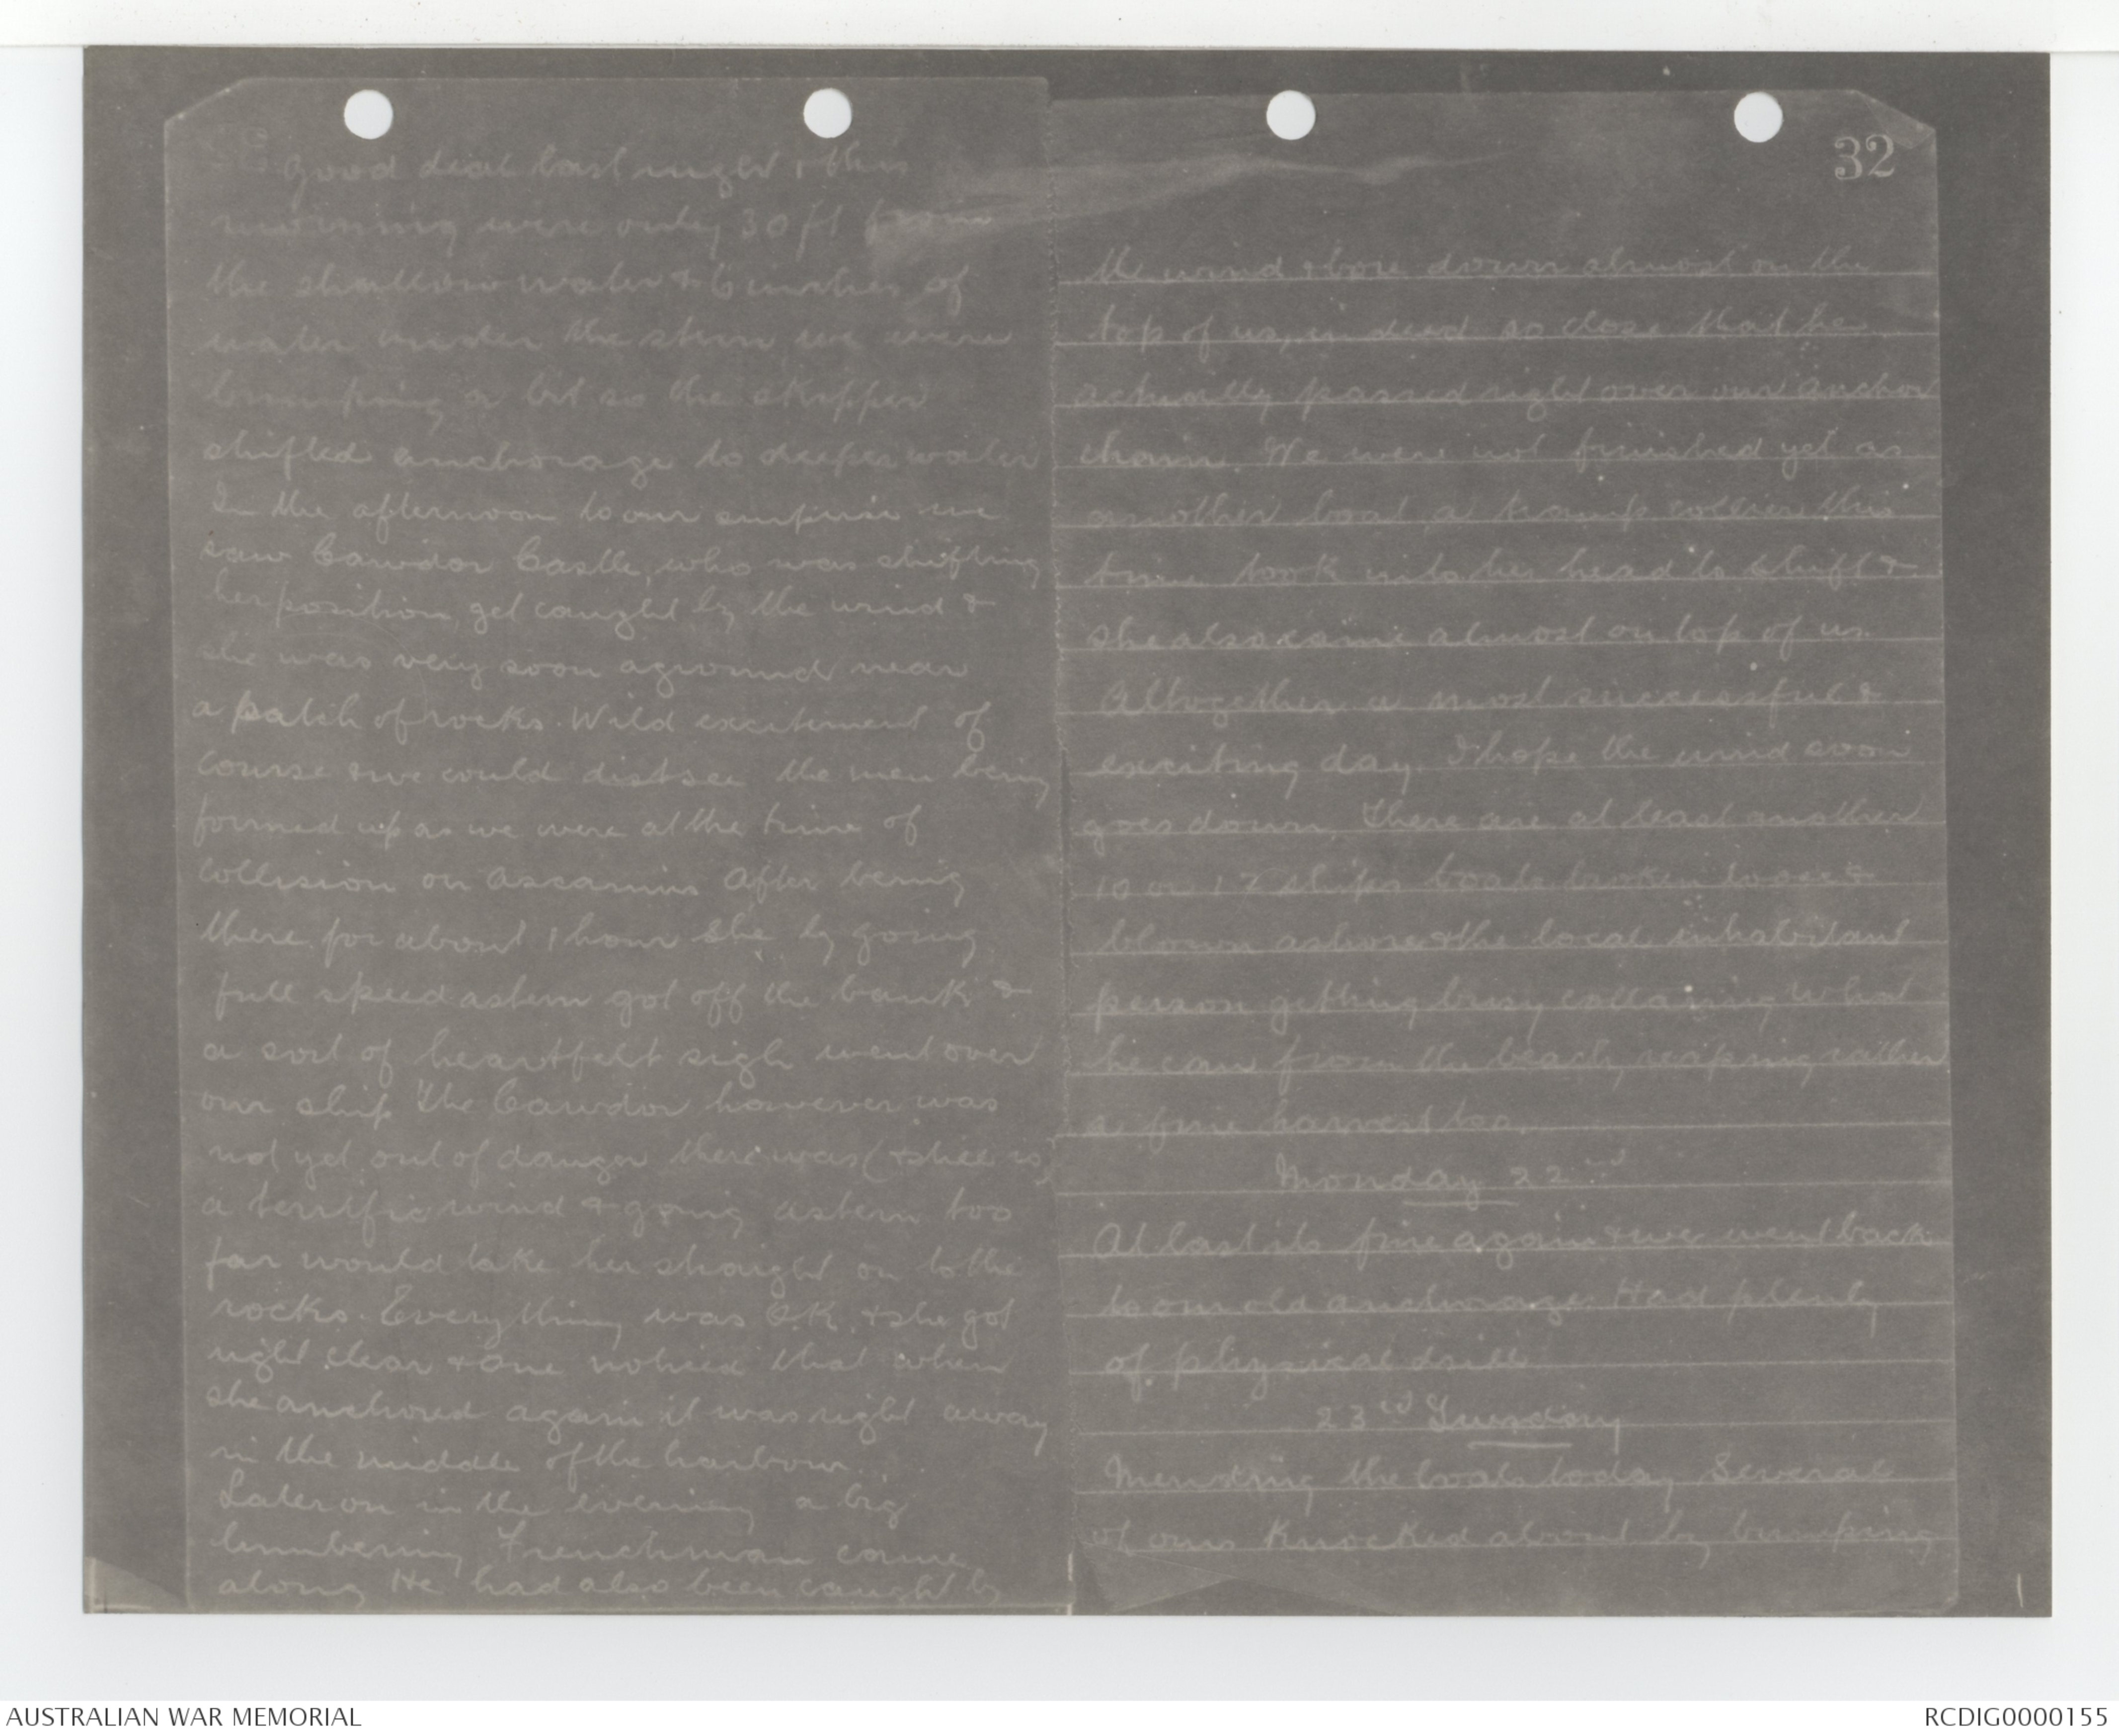 good deal last night & this
morning were only 30 ft from
the shallow water & 6 inches of
water under the stern we were
bumping a bit so the skipper
shifted anchorage to deeper water
In the afternoon to our surprise we
saw Cawdor Castle, who was shifting
her position, get caught by the wind &
she was very soon aground near
a patch of rocks. Wild excitement of
course & we could dist see the men being
formed up as we were at the time of
collision on Ascanius After being
there for about 1 hour she by going
full speed astern got off the bank &
a sort of heartfelt sigh went over
our ship The Cawdor however was
not yet out of danger there was (& still is)
a terrific wind & going astern too
far would take her straight on to the
rocks. Everything was O.K. & she got
right clear & one noticed that when
she anchored again it was right away
in the middle of the harbour.
Later on in the evening a big
lumbering Frenchman came
along He had also been caught by
32
the wind & bore down almost on the
top of us, indeed so close that he
actually passed right over our anchor
chain. We were not finished yet as
another boat, a tramp collier this
time took into her head to shift &
she also came almost on top of us.
Altogether a most successful &
exciting day. I hope the wind soon
goes down. There are at least another
10 or 12 ships boats broken loose &
blown ashore & the local inhabitant
person getting busy collaring what
he can from the beach, reaping rather
a fine harvest too.
Monday 22nd
At last its fine again & we went back
to our old anchorage. Had plenty
of physical drill
23rd Tuesday
Mending the boats today Several
of ours knocked about by bumping
AUSTRALIAN WAR MEMORIAL
RCDIG0000155